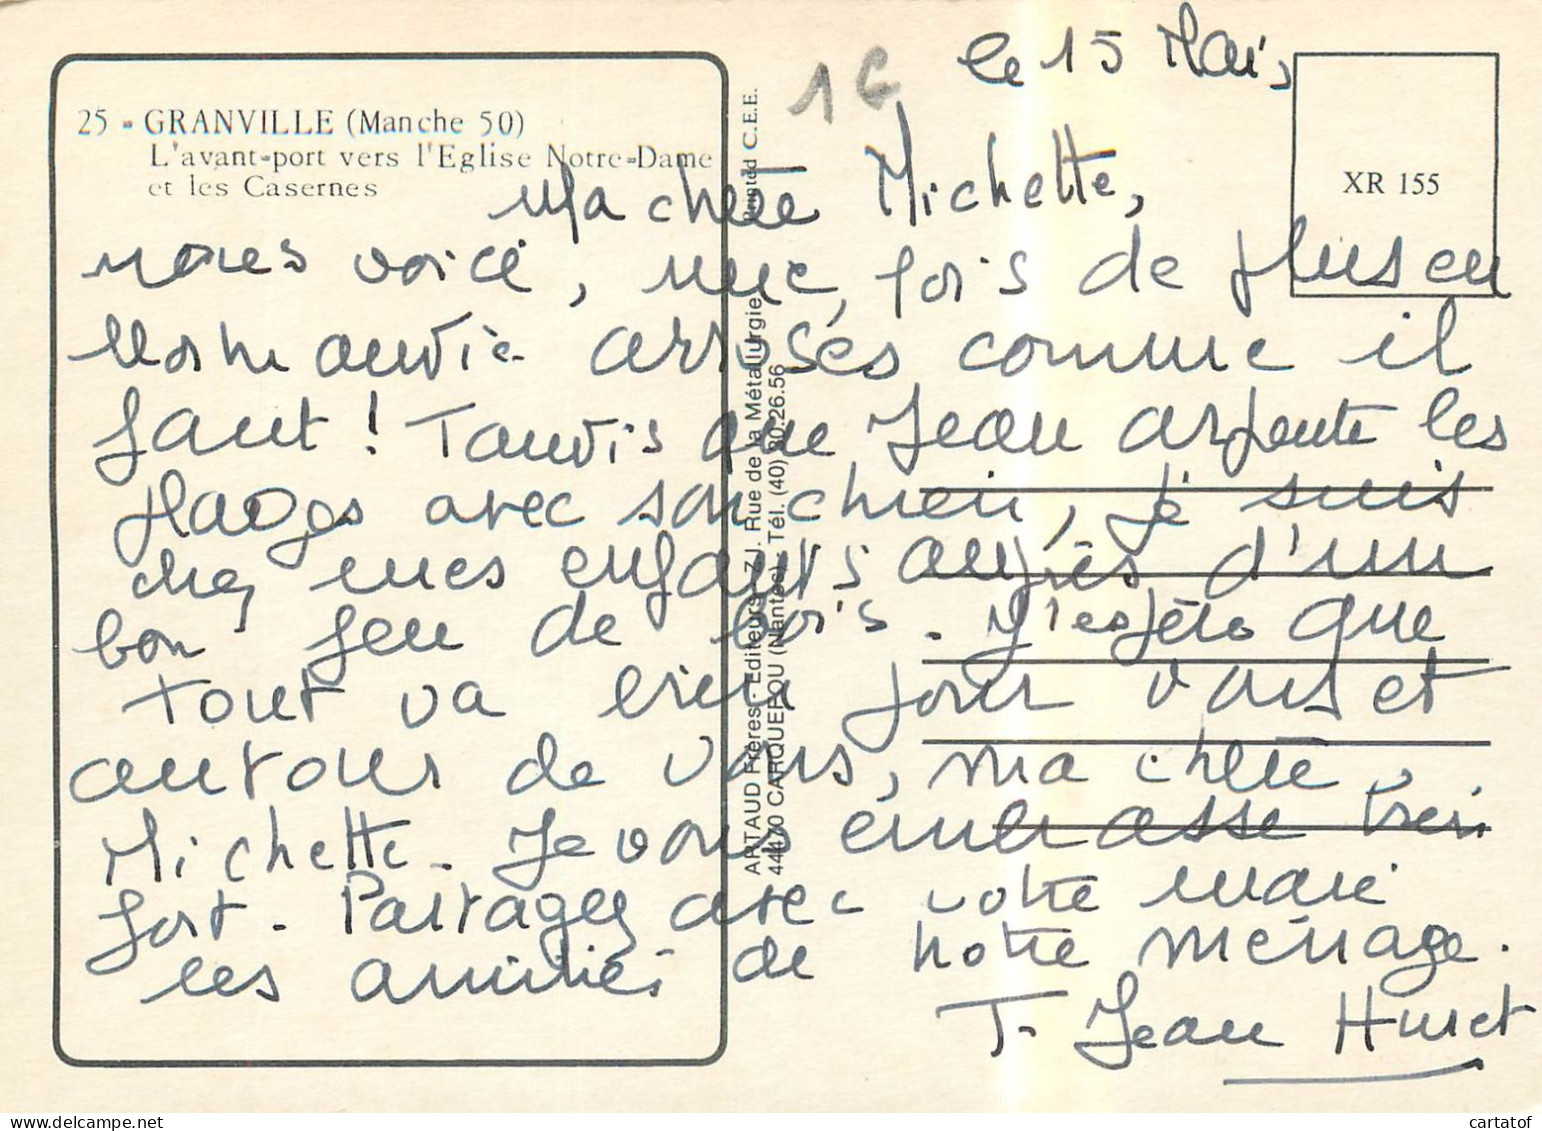 le 15 Mai,
1€
25 - GRANVILLE (Manche 50)
L'avant-port vers l'Eglise Notre-Dame
et les Casernes
XR 155
Printed C.E.E.
ARTAUD Frères - Editeurs Z.I. Rue de la Métallurgie
44470 CARQUEFOU (Nantes) - Tél. (40) 30.26.56
Ma chère Michette,
nous voici, une fois de plus en
Normandie arrosés comme il
faut ! Tandis que Jean arpente les
plages avec son chien, je suis
chez mes enfants auprès d'un
bon feu de bois. J'espère que
tout va bien pour vous et
autour de vous, ma chère
Michette. Je vous embrasse bien
fort. Partagez avec votre mari
les amitiés de notre ménage.
T. Jean Huet
cartatof